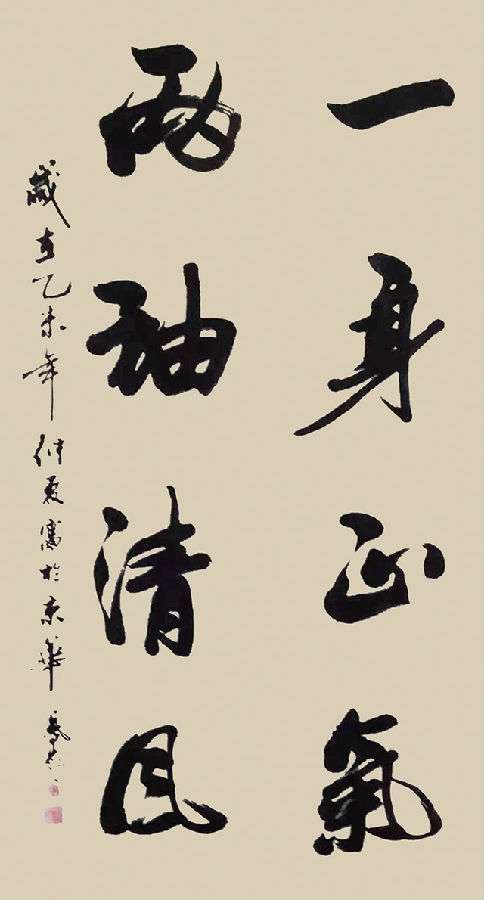 一身正氣
兩袖清風
歲在乙未年仲夏寫於京華